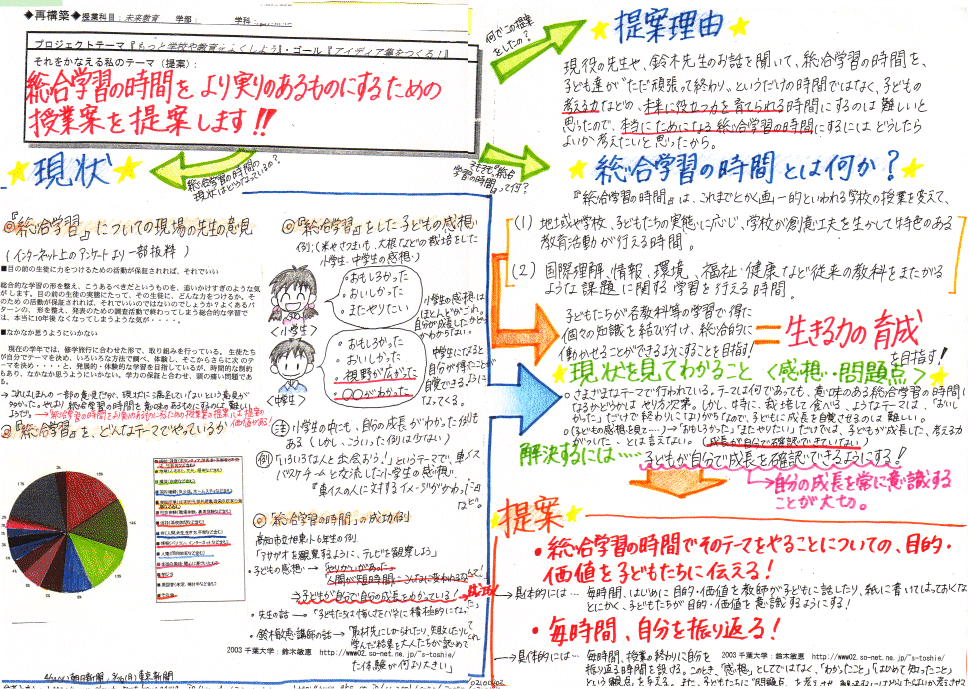 ◆再構築◆授業科目：未来教育　学部：　学科：
プロジェクトテーマ『もっと学校や教育をよくしよう』・ゴール『アイディア集をつくる！』
それをかなえる私のテーマ（提案）：
総合学習の時間をより実りのあるものにするための
授業案を提案します!!
現状
総合学習の時間の
現状はどうなっているの？
◎『総合学習』についての現場の先生意見
（インターネット上のアンケートより一部抜粋）
■目の前の生徒に力をつけるための活動が保証されれば、それでいい
総合的な学習の形を整え、こうあるべきだというものを、追いかけすぎのような気
がします。目の前の生徒の実態にたって、その生徒に、どんな力をつけるか。そ
のための活動が保証されれば、それでいいのではないのでしょうか？よくあるパ
ターンの、形を整え、発表のための調査活動で終わってしまう総合的な学習で
は、本当に10年後なくなってしまうような気が・・・。
■なかなか思うようにいかない
現在の学年では、修学旅行に合わせた形で、取り組みを行っている。生徒たち
が自分でテーマを決め、いろいろな方法で調べ、体験し、そこからさらに次のテ
ーマを決め・・・と、発展的・体験的な学習を目指しているが、時間的な制約も
あり、なかなか思うようにいかない。学力の保証と合わせ、頭の痛い問題であ
る。
◎『総合学習』を、どんなテーマでやっているか
◎『総合学習』をした子どもの感想
例：（米やさつまいも、大根などの栽培をした
小学生・中学生の感想）
・おもしろかった
・おいしかった
・またやりたい
<小学生>
小学生の感想は
ほとんどがこれ。
自分が成長したか
がわからない
・おもしろかった
・おいしかった
・視野が広がった
・〇〇がわかった
<中学生>
中学生になると
自分が得たことを
自覚できるように
なってくる。
注 小学生の中にも、自分の成長がわかった例も
ある（しかし、こういった例は少ない）
例）「いろいろな人と出会おう！」というテーマで、車イス
バスケチームと交流した小学生の感想
『車イスの人に対するイメージがかわった』
など。
◎「総合学習の時間」の成功例
高知市立旭東小6年生の例
「アサガオを観察するように、テレビを観察しよう」
・子どもの感想→
→子どもが自分で自分の成長をわかっている！
・先生の話→
・鈴木敏恵講師の話→「取材先にしかられたり、失敗したりして
学んだ結果を大人たちが認めて
くれた体験が何より大きい」
2003 千葉大学：鈴木敏恵　http://www02.so-net.ne.jp/~s-toshie/
何でこの提案
をしたの？
提案理由
現役の先生や、鈴木先生のお話を聞いて、総合学習の時間を、
子ども達が“ただ頑張って終わり”というだけの時間ではなく、子どもの
考える力などの、未来に役立つ力を育てられる時間にするのは難しいと
思ったので、本当にためになる総合学習の時間にするにはどうしたら
よいか考えたいと思ったから。
そもそも“総合
学習の時間”って何？
総合学習の時間とは何か？
『総合学習の時間』は、これまでとかく画一的といわれる学校の授業を変えて、
(1) 地域や学校、子どもたちの実態に応じ、学校が創意工夫を生かして特色のある
教育活動が行える時間。
(2) 国際理解、情報、環境、福祉・健康など従来の教科をまたがる
ような課題に関する学習を行える時間。
子どもたちが各教科等の学習で得た
個々の知識を結びつけ、総合的に
働かせることができるようにすることを目指す！
＝生きる力の育成
を目指す！
現状を見てわかること＜感想…問題点＞
○さまざまなテーマで行われている。テーマは何であっても、意味のある総合学習の時間に
なるかどうかは やり方次第。しかし、特に、栽培して食べる、ようなテーマは、「おいし
かった」だけで終わりにしてしまいがちなので、子どもに成長を自覚させるのは難しい。
○（子どもの感想を見て…）→「おもしろかった」「またやりたい」だけでは、子どもが成長した、考える力
がついた…とは言えない。（成長が自分で確認できていない）
解決するには……子どもが自分で成長を確認できるようにする！
→自分の成長を常に意識する
ことが大切。
提案
・総合学習の時間でそのテーマをやることについての、目的・
価値を子どもたちに伝える！
→具体的には… 毎時間、はじめに目的・価値を教師が子どもに話したり、紙に書いてはっておくなど
とにかく、子どもたちが目的・価値を意識するようにする！
・毎時間、自分を振り返る！
→具体的には… 毎時間、授業の終わりに自分を
2003 千葉大学：鈴木敏恵　http://www02.so-net.ne.jp/~s-toshie/
振り返る時間を設ける。このとき、「感想」としてではなく、「わかったこと」「はじめて知ったこと」
という観点を与える。また、子どもたちに“問題点”を